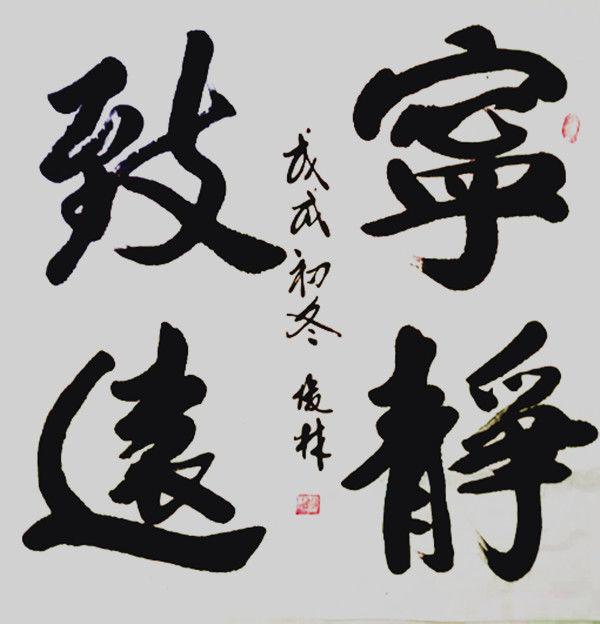 寧靜
致遠
戊戌初冬 俊林